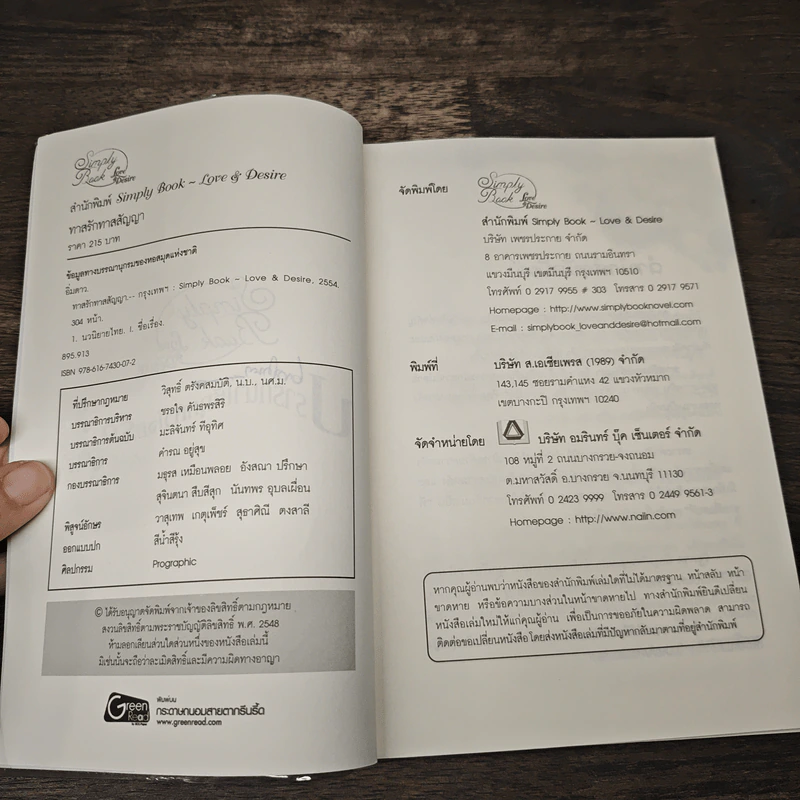 Simply Book Love & Desire
สำนักพิมพ์ Simply Book ~ Love & Desire
ทาสรักทาสสัญญา
ราคา 215 บาท
ข้อมูลทางบรรณานุกรมของหอสมุดแห่งชาติ
อิ่มดาว.
ทาสรักทาสสัญญา.-- กรุงเทพฯ : Simply Book – Love & Desire, 2554.
304 หน้า.
1. นวนิยายไทย. I. ชื่อเรื่อง.
895.913
ISBN 978-616-7430-07-2
ที่ปรึกษากฎหมาย วิสุทธิ์ ตรังคสมบัติ, น.บ., นศ.ม.
บรรณาธิการบริหาร ชรอใจ คันธพรสิริ
บรรณาธิการต้นฉบับ มะลิจันทร์ ทีอุทิศ
บรรณาธิการ คำรณ อยู่สุข
กองบรรณาธิการ มธุรส เหมือนพลอย อังสณา ปรึกษา
สุจินตนา สืบสีสุก นันทพร อุบลเผื่อน
พิสูจน์อักษร วาสุเทพ เกตุเพ็ชร์ สุธาศิณี ตงสาลี
ออกแบบปก สีน้ำสีรุ้ง
ศิลปกรรม Prographic
© ได้รับอนุญาตจัดพิมพ์จากเจ้าของลิขสิทธิ์ตามกฎหมาย
สงวนลิขสิทธิ์ตามพระราชบัญญัติลิขสิทธิ์ พ.ศ. 2548
ห้ามลอกเลียนส่วนใดส่วนหนึ่งของหนังสือเล่มนี้
มิเช่นนั้นจะถือว่าละเมิดสิทธิ์และมีความผิดทางอาญา
Green Read
พิมพ์บน
กระดาษถนอมสายตากรีนรี้ด
www.greenread.com
จัดพิมพ์โดย
Simply Book Love & Desire
สำนักพิมพ์ Simply Book – Love & Desire
บริษัท เพชรประกาย จำกัด
8 อาคารเพชรประกาย ถนนรามอินทรา
แขวงมีนบุรี เขตมีนบุรี กรุงเทพฯ 10510
โทรศัพท์ 0 2917 9955 # 303 โทรสาร 0 2917 9571
Homepage : http://www.simplybooknovel.com
E-mail : simplybook_loveanddesire@hotmail.com
พิมพ์ที่ บริษัท ส.เอเซียเพรส (1989) จำกัด
143,145 ซอยรามคำแหง 42 แขวงหัวหมาก
เขตบางกะปิ กรุงเทพฯ 10240
จัดจำหน่ายโดย บริษัท อมรินทร์ บุ๊ค เซ็นเตอร์ จำกัด
108 หมู่ที่ 2 ถนนบางกรวย-จงถนอม
ต.มหาสวัสดิ์ อ.บางกรวย จ.นนทบุรี 11130
โทรศัพท์ 0 2423 9999 โทรสาร 0 2449 9561-3
Homepage : http://www.naiin.com
หากคุณผู้อ่านพบว่าหนังสือของสำนักพิมพ์เล่มใดที่ไม่ได้มาตรฐาน หน้าสลับ หน้า
ขาดหาย หรือข้อความบางส่วนในหน้าขาดหายไป ทางสำนักพิมพ์ยินดีเปลี่ยน
หนังสือเล่มใหม่ให้แก่คุณผู้อ่าน เพื่อเป็นการขออภัยในความผิดพลาด สามารถ
ติดต่อขอเปลี่ยนหนังสือโดยส่งหนังสือเล่มที่มีปัญหากลับมาตามที่อยู่สำนักพิมพ์